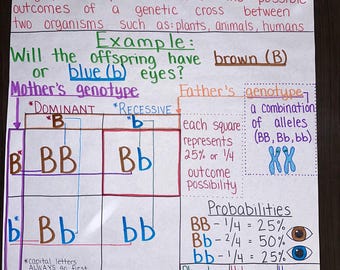 outcomes of a genetic cross between
two organisms such as: plants, animals, humans
Example:
Will the offspring have brown (B)
or blue (b) eyes?
Mother's genotype
Father's genotype
*DOMINANT
*RECESSIVE
*B
*b
B*
BB
Bb
b*
Bb
bb
*capital letters
ALWAYS go first
each square
represents
25% or 1/4
outcome
possibility
a combination
of alleles
(BB, Bb, bb)
Probabilities
BB - 1/4 = 25%
Bb - 2/4 = 50%
bb - 1/4 = 25%